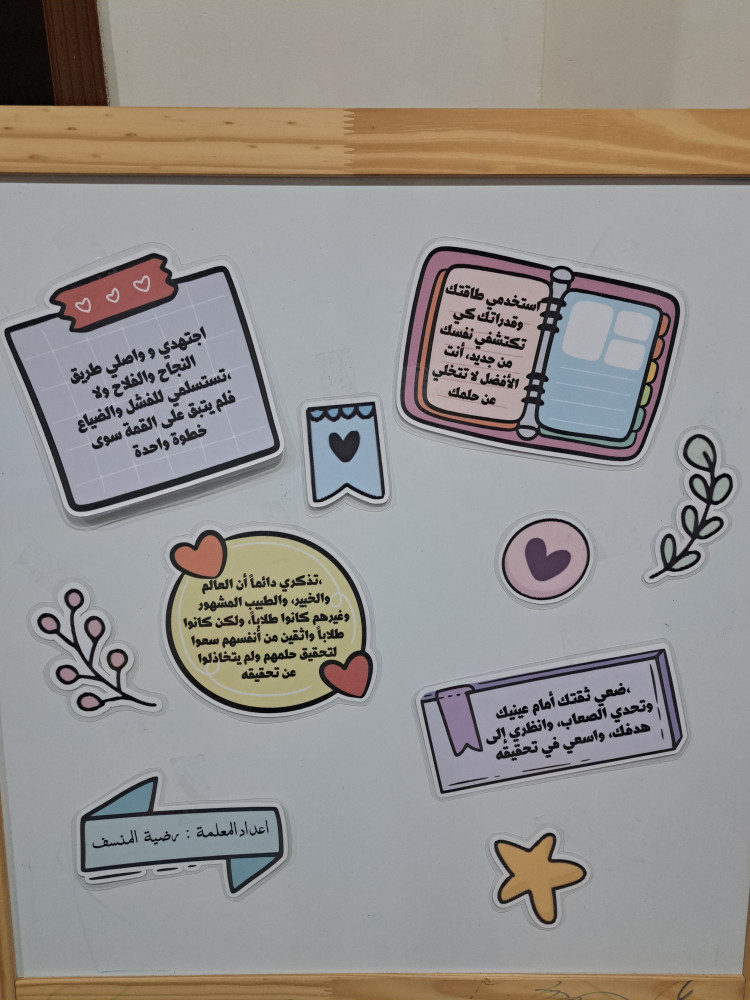 اجتهدي و واصلي طريق
النجاح والفلاح ولا
تستستلمي للفشل والضياع،
فلم يتبق على القمة سوى
خطوة واحدة
استخدمي طاقتك
وقدراتك كي
تكتشفي نفسك
من جديد، أنت
الأفضل لا تتخلي
عن حلمك
تذكري دائماً أن العالم،
والخبير، والطبيب المشهور
وغيرهم كانوا طلاباً، ولكن كانوا
طلاباً واثقين من أنفسهم سعوا
لتحقيق حلمهم ولم يتخاذلوا
عن تحقيقه
ضعي ثقتك أمام عينيك،
وتحدي الصعاب، وانظري إلى
هدفك، واسعي في تحقيقه
اعداد المعلمة : رضية المنسف